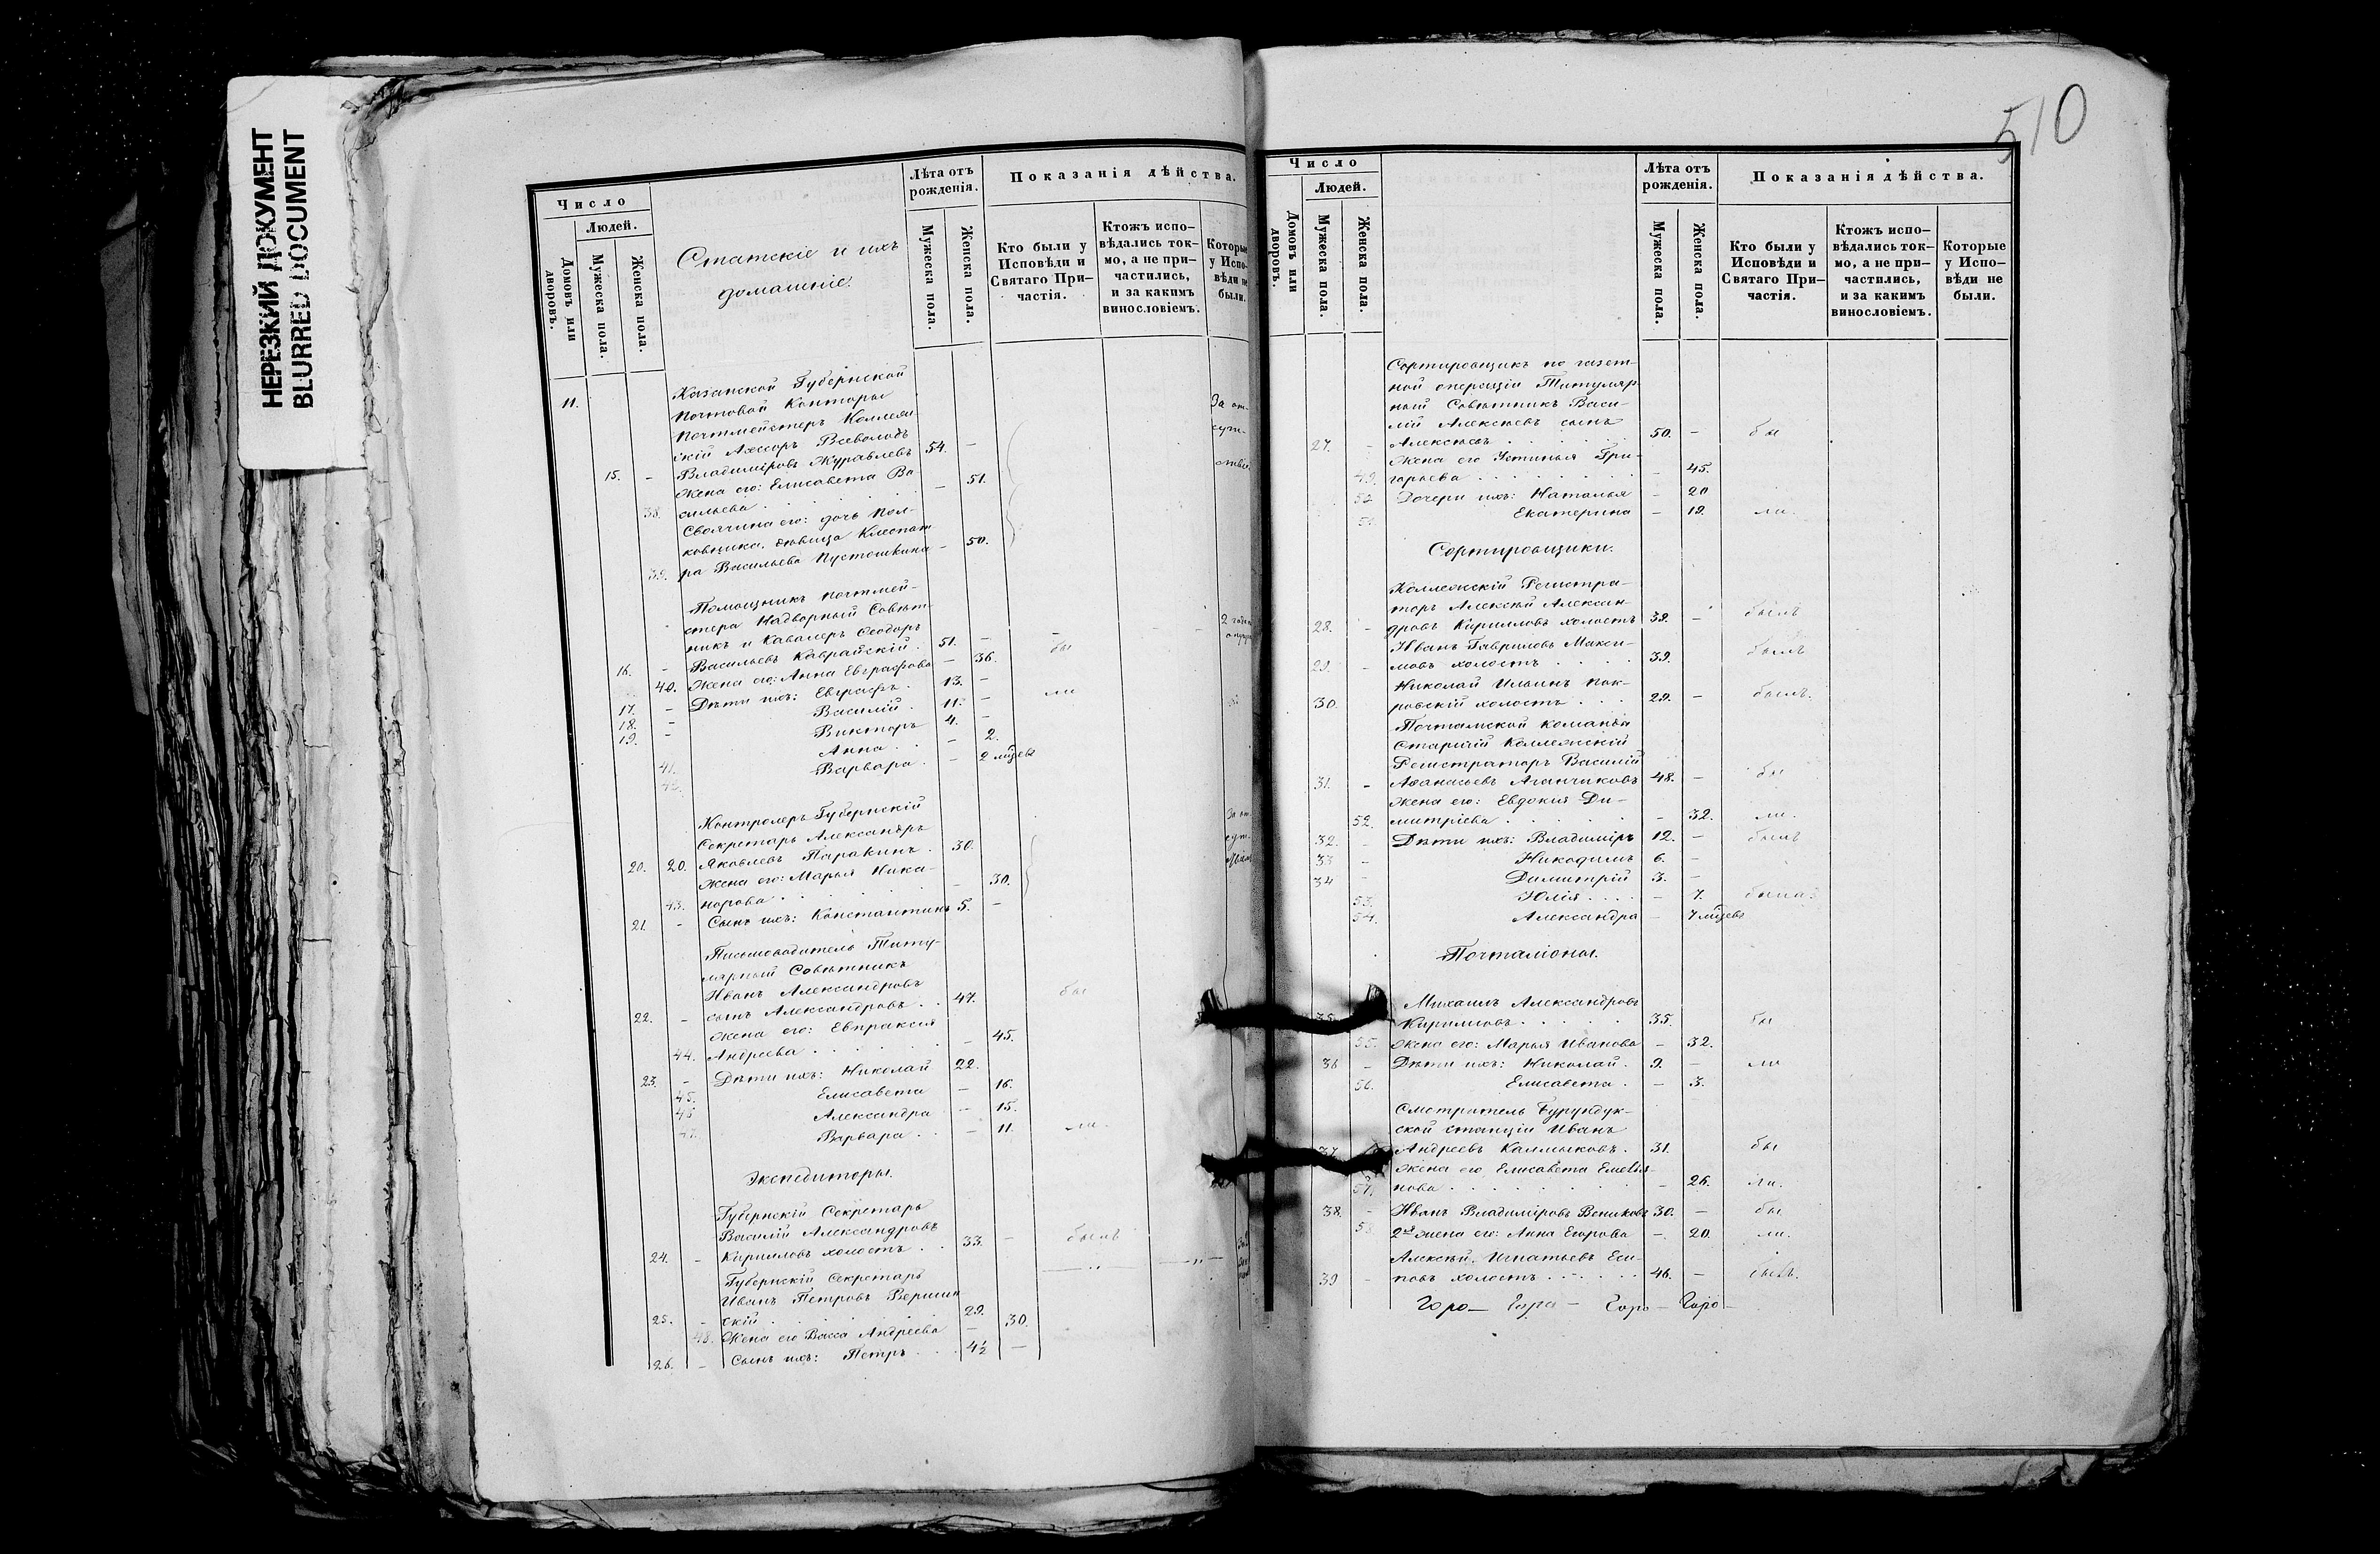 НЕРЕЗКИЙ ДОКУМЕНТ
BLURRED DOCUMENT
Число
Людей.
Домовъ или дворовъ.
Мужеска пола.
Женска пола.
Статскіе и ихъ
домашніе.
Лѣта отъ рожденія.
Мужеска пола.
Женска пола.
Показанія дѣйства.
Кто были у Исповѣди и Святаго При-частія.
Ктожъ испо-вѣдались ток-мо, а не при-частились, и за какимъ винословіемъ.
Которые у Испо-вѣди не были.
11.
Казанской Губернской
Почтовой Конторы
Почтмейстеръ Коллеж-
скій Ассесоръ Всеволодъ
15. - Владиміровъ Журавлевъ 54. -
За от-
сутс-
ствіе.
Жена его: Елисавета Ва
38. сильева . . . - 51.
Своячина его: дочь Пол-
ковника, дѣвица Клеопат
39. ра Васильева Пустошкина - 50.
Помощникъ Почтмей-
стера Надворный Совѣт-
никъ и Кавалеръ Ѳеодоръ
16. - Васильевъ Каврайскій . 51. -
40. Жена его: Анна Евграфова - 36. бы
17. - Дѣти ихъ: Евграфъ . 13. -
18. - Василій . 11. - ли
19. - Викторъ 4. -
41. Анна . . - 2.
Варвара . - 2 мѣсяц
Контролеръ Губернскій
Секретарь Александръ
20. 20. Яковлевъ Паракинъ . 30.
Жена его: Марья Ника-
43. норова . . - 30.
21. - Сынъ ихъ: Константинъ 5. -
Письмоводитель Титу-
лярный Совѣтникъ
Иванъ Александровъ
22. - сынъ Александровъ . . 47. бы
Жена его: Евпраксія
44. Андреева . . . - 45.
23. - Дѣти ихъ: Николай 22.
45. Елисавета - 16.
46 Александра - 15.
47. Варвара . . - 11. ли.
Экспедиторы.
Губернскій Секретарь
Василій Александровъ
24. - Кириловъ холостъ . . 33. - былъ
Губернскій Секретарь
Иванъ Петровъ
25. - скій . . . 29.
48. Жена его Васса Андреева - 30.
26. - Сынъ ихъ: Петръ . . . 4½ -
510
Число
Людей.
Домовъ или дворовъ.
Мужеска пола.
Женска пола.
Лѣта отъ рожденія.
Мужеска пола.
Женска пола.
Показанія дѣйства.
Кто были у Исповѣди и Святаго При-частія.
Ктожъ испо-вѣдались ток-мо, а не при-частились, и за какимъ винословіемъ.
Которые у Испо-вѣди не были.
Сортировщикъ по газет-
ной операціи Титуляр-
ный Совѣтникъ Васи-
лій Алексѣевъ сынъ
27. - Алексѣевъ . . . 50. - бы
Жена его Устинья Гри-
49. горьева . . . - 45.
Дочери ихъ: Наталья - 20
Екатерина - 19. ли.
Сортировщики.
Коллежскій Регистра-
торъ Алексѣй Алексан-
28. - дровъ Кириловъ холостъ 39. - былъ
Иванъ Гавриловъ Макси-
29. - мовъ холостъ . . . 39. былъ
Николай Ильинъ Пок-
30. ровскій холостъ . . . 29. - былъ.
Почтамской команды
Старшій Коллежскій
Регистраторъ Василій
31. - Аѳанасьевъ Аганчиковъ 48. - бы
Жена его: Евдокія Ди-
52. митріева . . . - 32. ли.
32. - Дѣти ихъ: Владиміръ 12. - былъ
33 - Никодимъ 6. -
34 - Димитрій 3. -
53. Юлія . . . - 7. была:
54. Александра - 7 мѣсяц
Почталіоны.
Михаилъ Александровъ
35. Кириловъ . . . 35. бы
55. Жена его: Марья Иванова - 32.
36 - Дѣти ихъ: Николай . 9. - ли
56. Елисавета . - 3.
Смотритель Бурундук-
ской станціи Иванъ
37. Андреевъ Калмыковъ . 31. бы
Жена его Елисавета Емелья-
57. нова . . . - 26. ли.
38. - Иванъ Владиміровъ Вениковъ 30. - бы
2я жена его: Анна Егорова - 20. ли.
Алексѣй Игнатьевъ Еси-
39 - повъ холостъ . . . 46. - былъ.